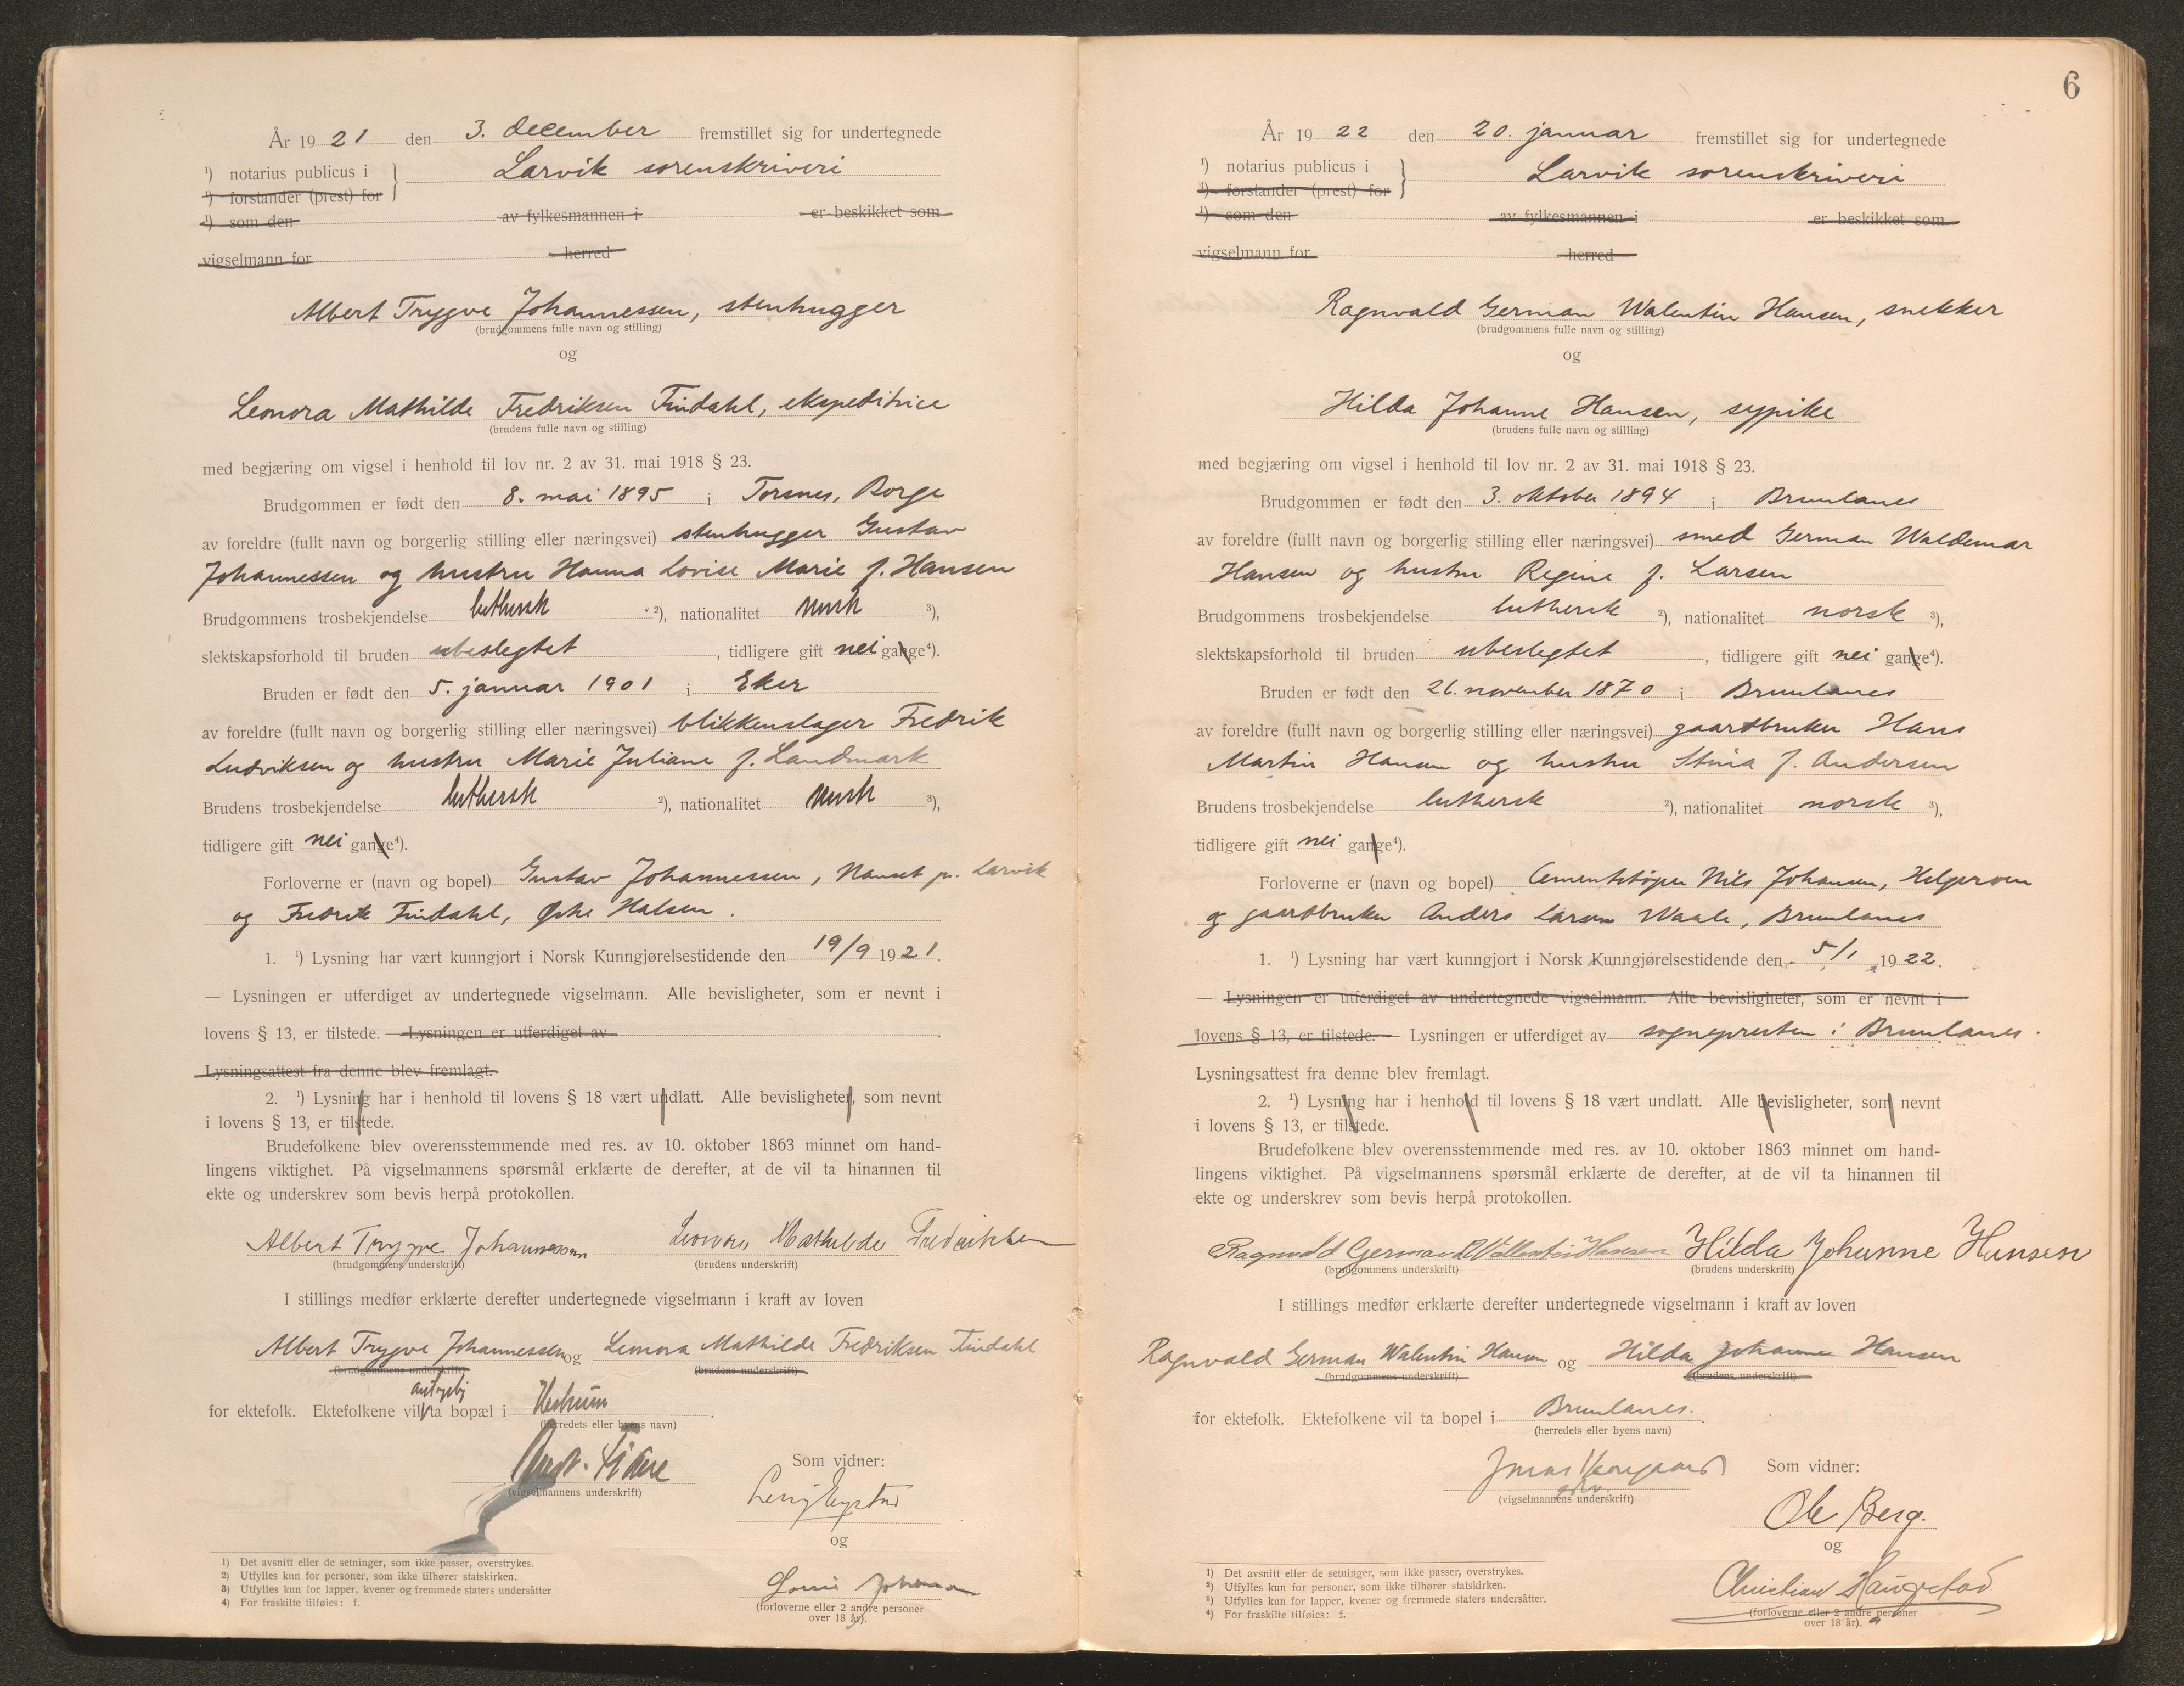 År 19 21 den 3. december fremstillet sig for undertegnede
¹) notarius publicus i } Larvik sorenskriveri
¹) forstander (prest) for
¹) som den av fylkesmannen i er beskikket som
vigselmann for herred
Albert Trygve Johannessen, stenhugger
(brudgommens fulle navn og stilling)
og
Leonora Mathilde Fredriksen Tindahl, ekspeditrice
(brudens fulle navn og stilling)
med begjæring om vigsel i henhold til lov nr. 2 av 31. mai 1918 § 23.
Brudgommen er født den 8. mai 1895 i Torsnes, Borge
av foreldre (fullt navn og borgerlig stilling eller næringsvei) stenhugger Gustav
Johannessen og hustru Hanna Lovise Marie f. Hansen
Brudgommens trosbekjendelse luthersk ²), nationalitet norsk ³),
slektskapsforhold til bruden ubeslegtet, tidligere gift nei gange⁴).
Bruden er født den 5. januar 1901 i Eker
av foreldre (fullt navn og borgerlig stilling eller næringsvei) blikkenslager Fredrik
Ludviksen og hustru Marie Juliane f. Landmark
Brudens trosbekjendelse luthersk ²), nationalitet norsk ³),
tidligere gift nei gange⁴).
Forloverne er (navn og bopel) Gustav Johannessen, Nanset pr. Larvik
og Fredrik Tindahl, Østre Halsen.
1. ¹) Lysning har vært kunngjort i Norsk Kunngjørelsestidende den 19/9 1921.
— Lysningen er utferdiget av undertegnede vigselmann. Alle bevisligheter, som er nevnt i
lovens § 13, er tilstede. — Lysningen er utferdiget av .
Lysningsattest fra denne blev fremlagt.
2. ¹) Lysning har i henhold til lovens § 18 vært undlatt. Alle bevisligheter, som nevnt
i lovens § 13, er tilstede.
Brudefolkene blev overensstemmende med res. av 10. oktober 1863 minnet om hand-
lingens viktighet. På vigselmannens spørsmål erklærte de derefter, at de vil ta hinannen til
ekte og underskrev som bevis herpå protokollen.
Albert Trygve Johannessen Leonora Mathilde Fredriksen
(brudgommens underskrift) (brudens underskrift)
I stillings medfør erklærte derefter undertegnede vigselmann i kraft av loven
Albert Trygve Johannessen og Leonora Mathilde Fredriksen Tindahl
(brudgommens underskrift) (brudens underskrift)
for ektefolk. Ektefolkene vil ta bopæl i Hedrum.
(herredets eller byens navn)
Som vidner:
(vigselmannens underskrift)
og
(forloverne eller 2 andre personer
over 18 år).
1) Det avsnitt eller de setninger, som ikke passer, overstrykes.
2) Utfylles kun for personer, som ikke tilhører statskirken.
3) Utfylles kun for lapper, kvener og fremmede staters undersåtter
4) For fraskilte tilføies: f.
6
År 19 22 den 20. januar fremstillet sig for undertegnede
¹) notarius publicus i } Larvik sorenskriveri
¹) forstander (prest) for
¹) som den av fylkesmannen i er beskikket som
vigselmann for herred
Ragnvald German Walentin Hansen, snekker
(brudgommens fulle navn og stilling)
og
Hilda Johanne Hansen, sypike
(brudens fulle navn og stilling)
med begjæring om vigsel i henhold til lov nr. 2 av 31. mai 1918 § 23.
Brudgommen er født den 3. oktober 1894 i Brunlanes
av foreldre (fullt navn og borgerlig stilling eller næringsvei) smed German Waldemar
Hansen og hustru Regine f. Larsen
Brudgommens trosbekjendelse luthersk ²), nationalitet norsk ³),
slektskapsforhold til bruden ubeslegtet, tidligere gift nei gange⁴).
Bruden er født den 26. november 1870 i Brunlanes
av foreldre (fullt navn og borgerlig stilling eller næringsvei) gaardbruker Hans
Martin Hansen og hustru Stina f. Andersen
Brudens trosbekjendelse luthersk ²), nationalitet norsk ³),
tidligere gift nei gange⁴).
Forloverne er (navn og bopel) Cementstøper Nils Johansen, Helgeroen
og gaardbruker Anders Larsen Waale, Brunlanes
1. ¹) Lysning har vært kunngjort i Norsk Kunngjørelsestidende den 5/1 1922.
— Lysningen er utferdiget av undertegnede vigselmann. Alle bevisligheter, som er nevnt i
lovens § 13, er tilstede. — Lysningen er utferdiget av sognepresten i Brunlanes.
Lysningsattest fra denne blev fremlagt.
2. ¹) Lysning har i henhold til lovens § 18 vært undlatt. Alle bevisligheter, som nevnt
i lovens § 13, er tilstede.
Brudefolkene blev overensstemmende med res. av 10. oktober 1863 minnet om hand-
lingens viktighet. På vigselmannens spørsmål erklærte de derefter, at de vil ta hinannen til
ekte og underskrev som bevis herpå protokollen.
Ragnvald German Wallentin Hansen Hilda Johanne Hansen
(brudgommens underskrift) (brudens underskrift)
I stillings medfør erklærte derefter undertegnede vigselmann i kraft av loven
Ragnvald German Walentin Hansen og Hilda Johanne Hansen
(brudgommens underskrift) (brudens underskrift)
for ektefolk. Ektefolkene vil ta bopel i Brunlanes.
(herredets eller byens navn)
Som vidner:
(vigselmannens underskrift)
Ole Berg.
og
Christian Haugestad
(forloverne eller 2 andre personer
over 18 år).
1) Det avsnitt eller de setninger, som ikke passer, overstrykes.
2) Utfylles kun for personer, som ikke tilhører statskirken.
3) Utfylles kun for lapper, kvener og fremmede staters undersåtter.
4) For fraskilte tilføies: f.